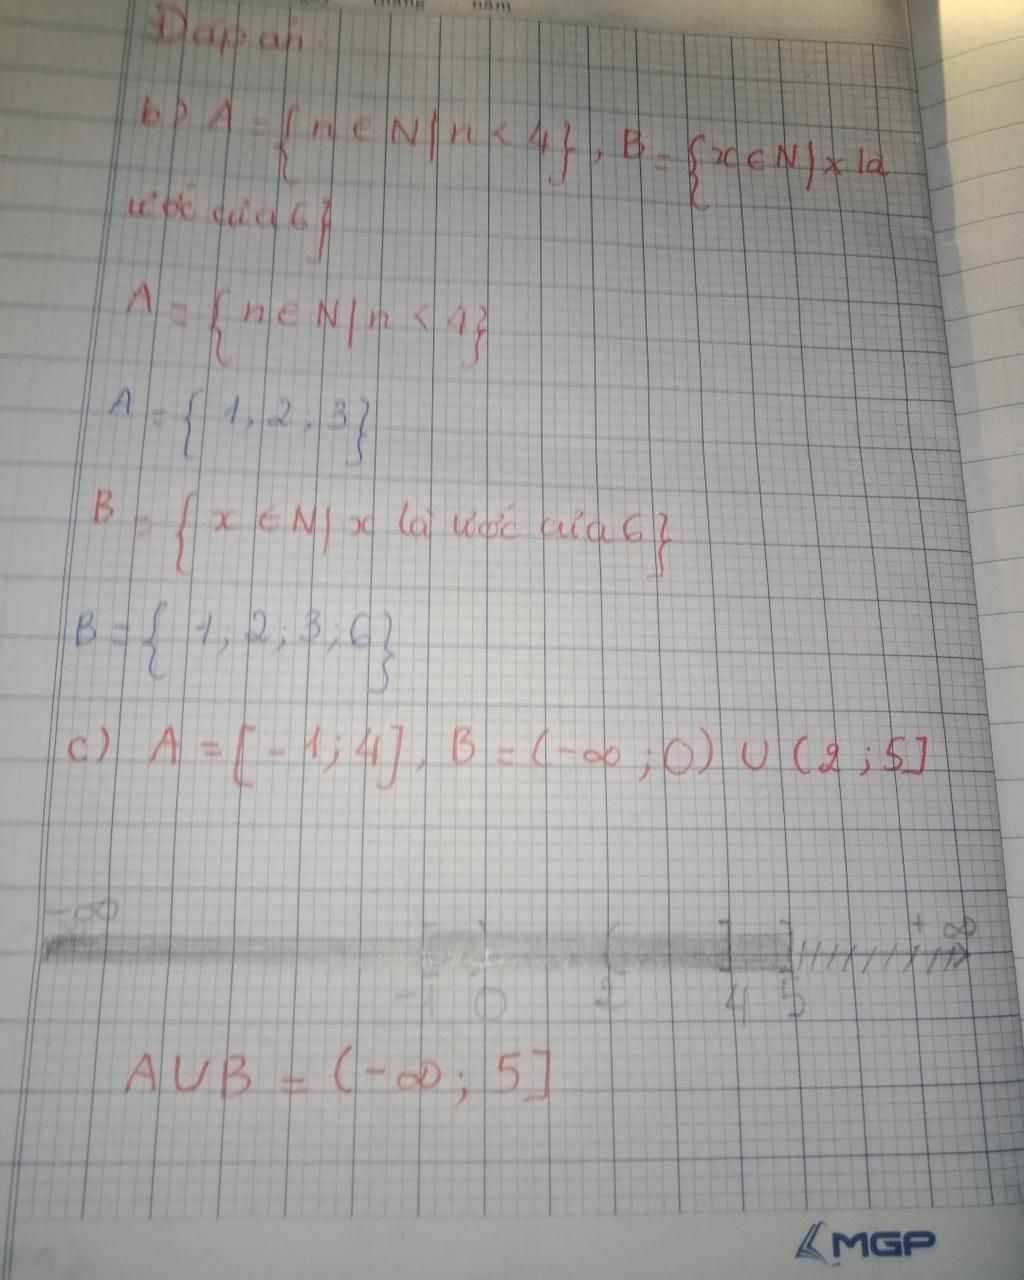 tháng năm
Đáp án:
b) A = { n ∈ N / n < 4 } , B = { x ∈ N / x là
ước của 6 }
A = { n ∈ N / n < 4 }
A = { 1 , 2 , 3 }
B = { x ∈ N / x là ước của 6 }
B = { 1 ; 2 ; 3 ; 6 }
c) A = [ -1 ; 4 ] , B = ( -∞ ; 0 ) ∪ ( 2 ; 5 ]
-∞ [ ) ( ] ] + ∞
-1 0 2 4 5
A ∪ B = ( -∞ ; 5 ]
MGP